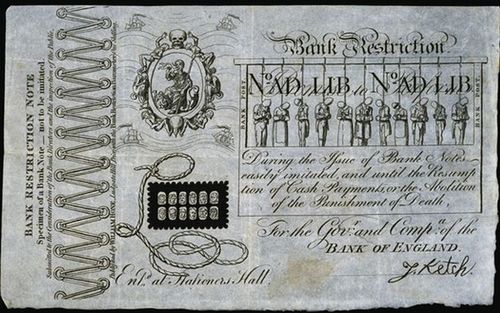 BANK RESTRICTION NOTE
Specimen of a Bank Note not to be imitated.
Submitted to the Consideration of the Bank Directors and the inspection of the Public.
Bank Restriction
No. AD LIB to No. AD LIB
BANK POST.
BANK POST.
During the Issue of Bank Notes
easily imitated, and until the Resump
tion of Cash Payments, or the Abolition
of the Punishment of Death,
For the Govr. and Compa. of the
BANK OF ENGLAND.
J. Ketch.
Entd. at Stationers Hall.